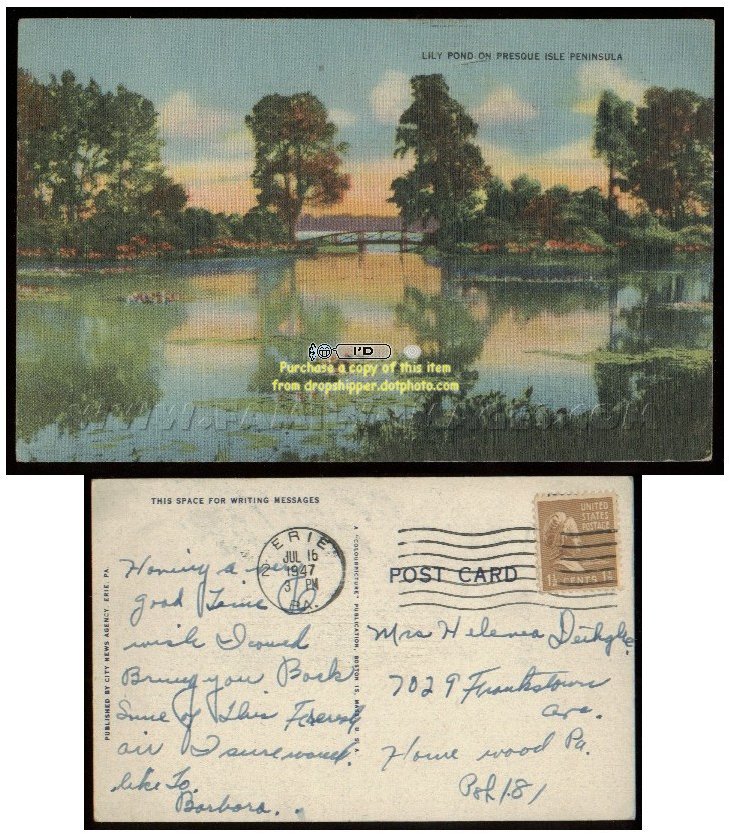 LILY POND ON PRESQUE ISLE PENINSULA
I'D
Purchase a copy of this item
from dropshipper.dotphoto.com
THIS SPACE FOR WRITING MESSAGES
ERIE
JUL 16
2 1947
3 PM
PA.
UNITED
STATES
POSTAGE
1½ CENTS 1½
POST CARD
PUBLISHED BY CITY NEWS AGENCY, ERIE, PA.
A "COLOURPICTURE" PUBLICATION, BOSTON 15, MASS., U.S.A.
Having a very
good time
wish I could
Bring you Back
Some of This
air I sure would
like To.
Barbara.
Mrs Helena
7029 Frankstown
ave.
Home wood Pa.
Pgh. 8